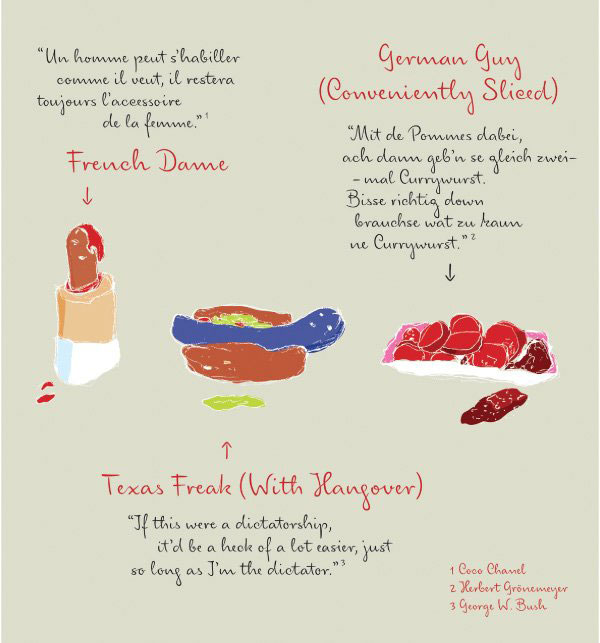 “Un homme peut s’habiller
comme il veut, il restera
toujours l’accessoire
de la femme.”1
French Dame
↓
German Guy
(Conveniently Sliced)
“Mit de Pommes dabei,
ach dann geb’n se gleich zwei-
-mal Currywurst.
Bisse richtig down
brauchse wat zu kaun
ne Currywurst.”2
↓
↑
Texas Freak (With Hangover)
“If this were a dictatorship,
it’d be a heck of a lot easier, just
so long as I’m the dictator.”3
1 Coco Chanel
2 Herbert Grönemeyer
3 George W. Bush